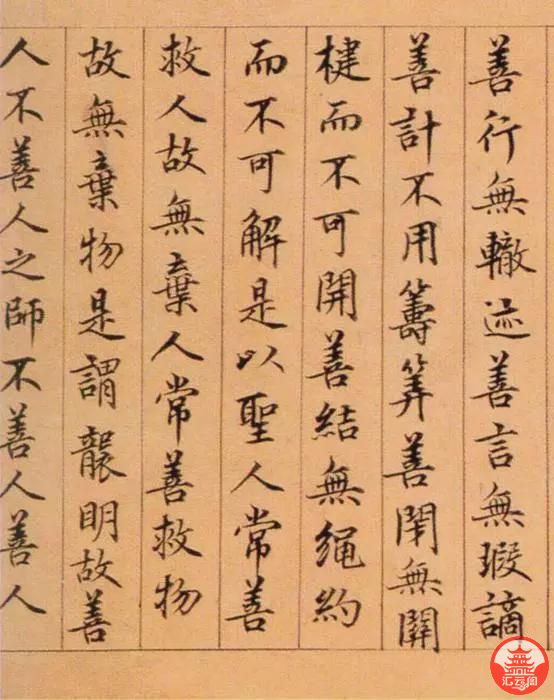 善行無轍迹善言無瑕謫
善計不用籌筭善閇無關
楗而不可開善結無繩約
而不可解是以聖人常善
救人故無棄人常善救物
故無棄物是謂襲明故善
人不善人之師不善人善人
汇云阁